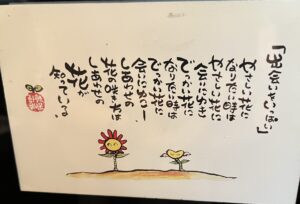 「出会いいっぱい」
やさしい花に
なりたい時は
やさしい花に
会いにゆき
でっかい花に
なりたい時は
でっかい花に
会いにゆこー
しあわせの
花の咲き方は
しあわせの
花が
知っている